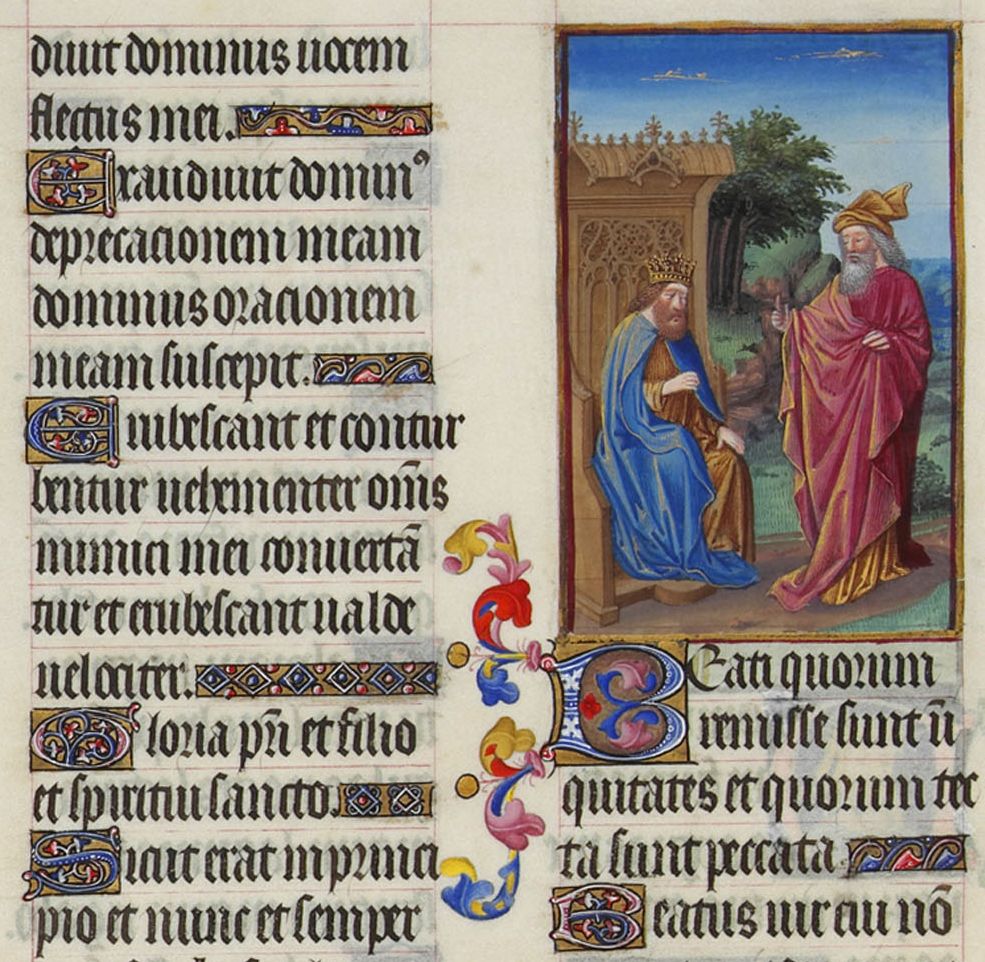 diuit dominus uocem
flectus mei.
Exaudiuit domin⁹
deprecacionem meam
dominus oracionem
meam suscepit.
Erubescant et contur
bentur uehementer om̄s
inimici mei conuertā
tur et erubescant ualde
uelociter.
Gloria pr̄i et filio
et spiritui sancto.
Sicut erat in princi
pio et nunc et semper
Beati quorum
remisse sunt īi
quitates et quorum tec
ta sunt peccata.
Beatus uir cui nō